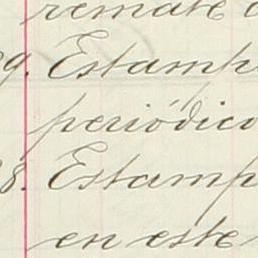 remate
9. Estamp
periódico
8. Estamp
en este